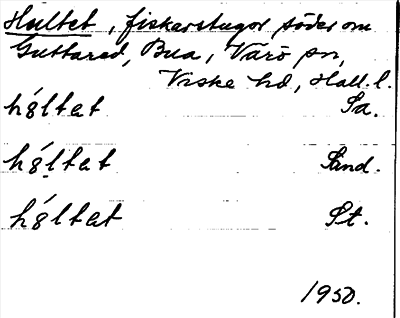 Hultet, fiskarstugor söder om
Guttarad, Bua, Värö sn,
Viske hd, Hall. l.
hó̤ltet Sa.
hó̤ltet Sand.
hó̤ltet St.
1950.